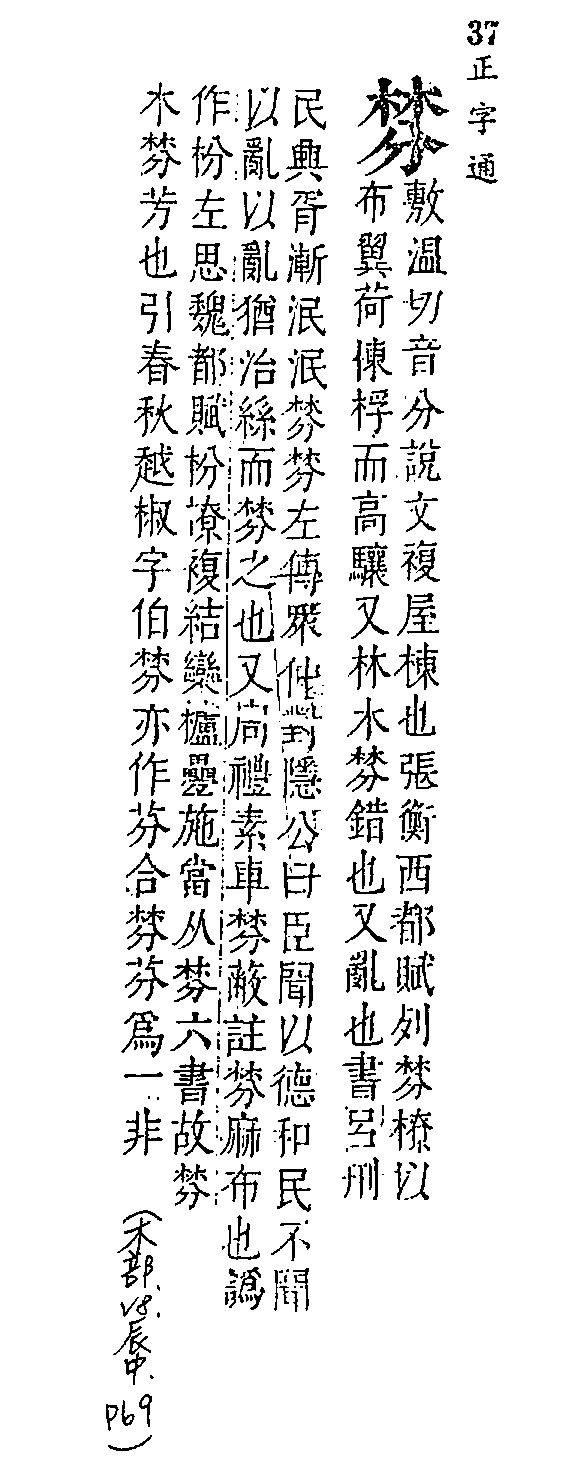 37 正字通
棼
敷温切音分說文複屋棟也張衡西都賦列棼橑以
布翼荷棟桴而高驤又林木棼錯也又亂也書呂刑
民興胥漸泯泯棼棼左傳眾仲對隱公曰臣聞以德和民不聞
以亂以亂猶治絲而棼之也又周禮素車棼蔽註棼麻布也譌
作枌左思魏都賦枌橑複結欒櫨疊施當从棼六書故棼
木棼芳也引春秋越椒字伯棼亦作芬合棼芬爲一非
(木部. V8. 辰中. P69)